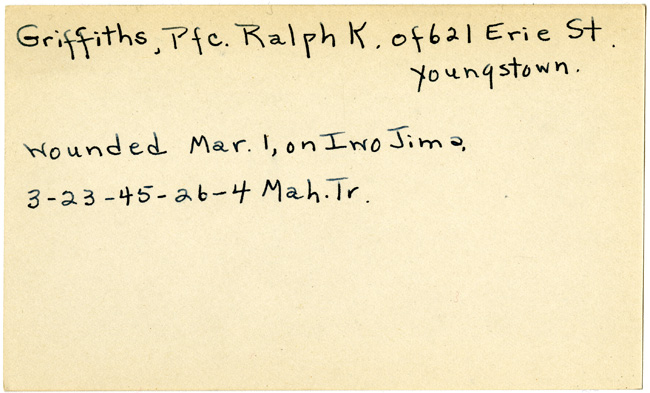 Griffiths, Pfc. Ralph K. of 621 Erie St.
Youngstown.
Wounded Mar. 1, on Iwo Jima,
3-23-45-26-4 Mah. Tr.